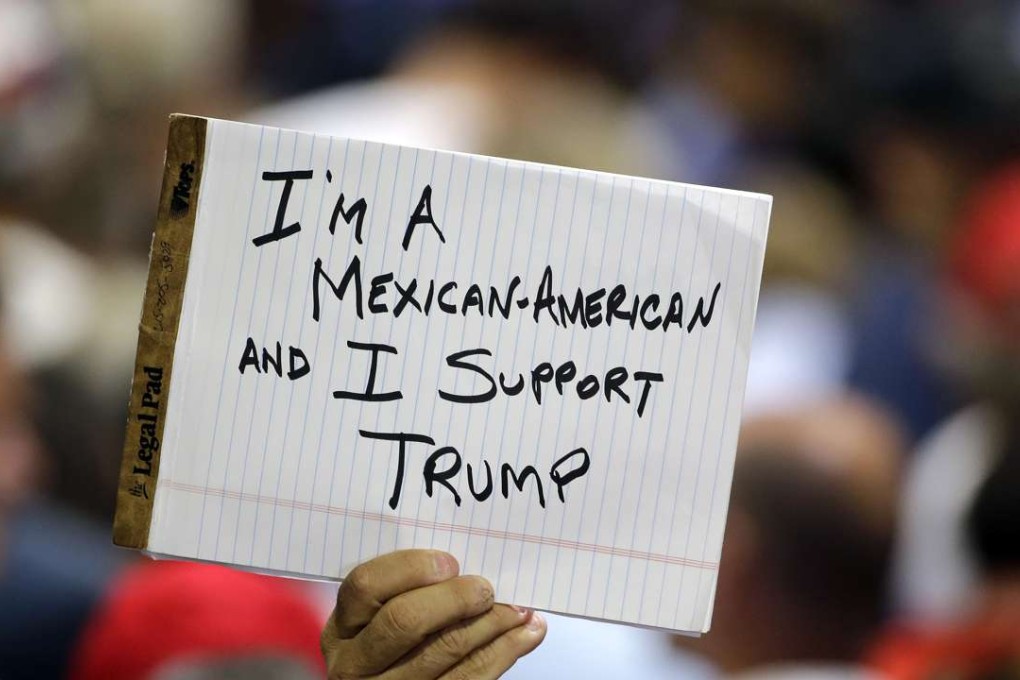 I'M A
MEXICAN-AMERICAN
AND I SUPPORT
TRUMP
the Legal Pad
TOPS